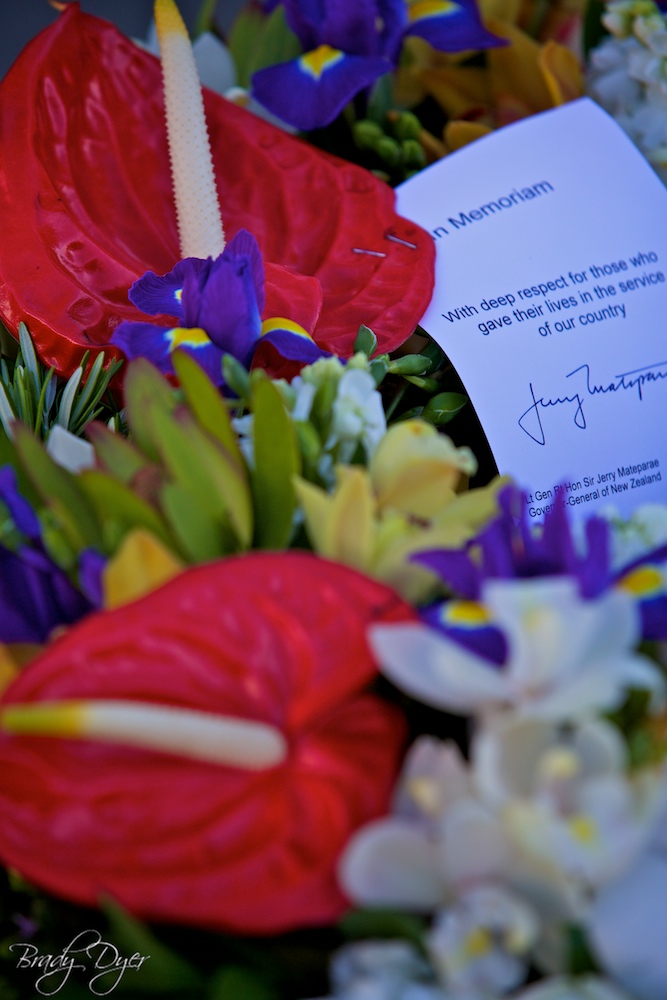 In Memoriam
With deep respect for those who
gave their lives in the service
of our country
Jerry Mateparae
Lt Gen Rt Hon Sir Jerry Mateparae
Governor-General of New Zealand
Brady Dyer